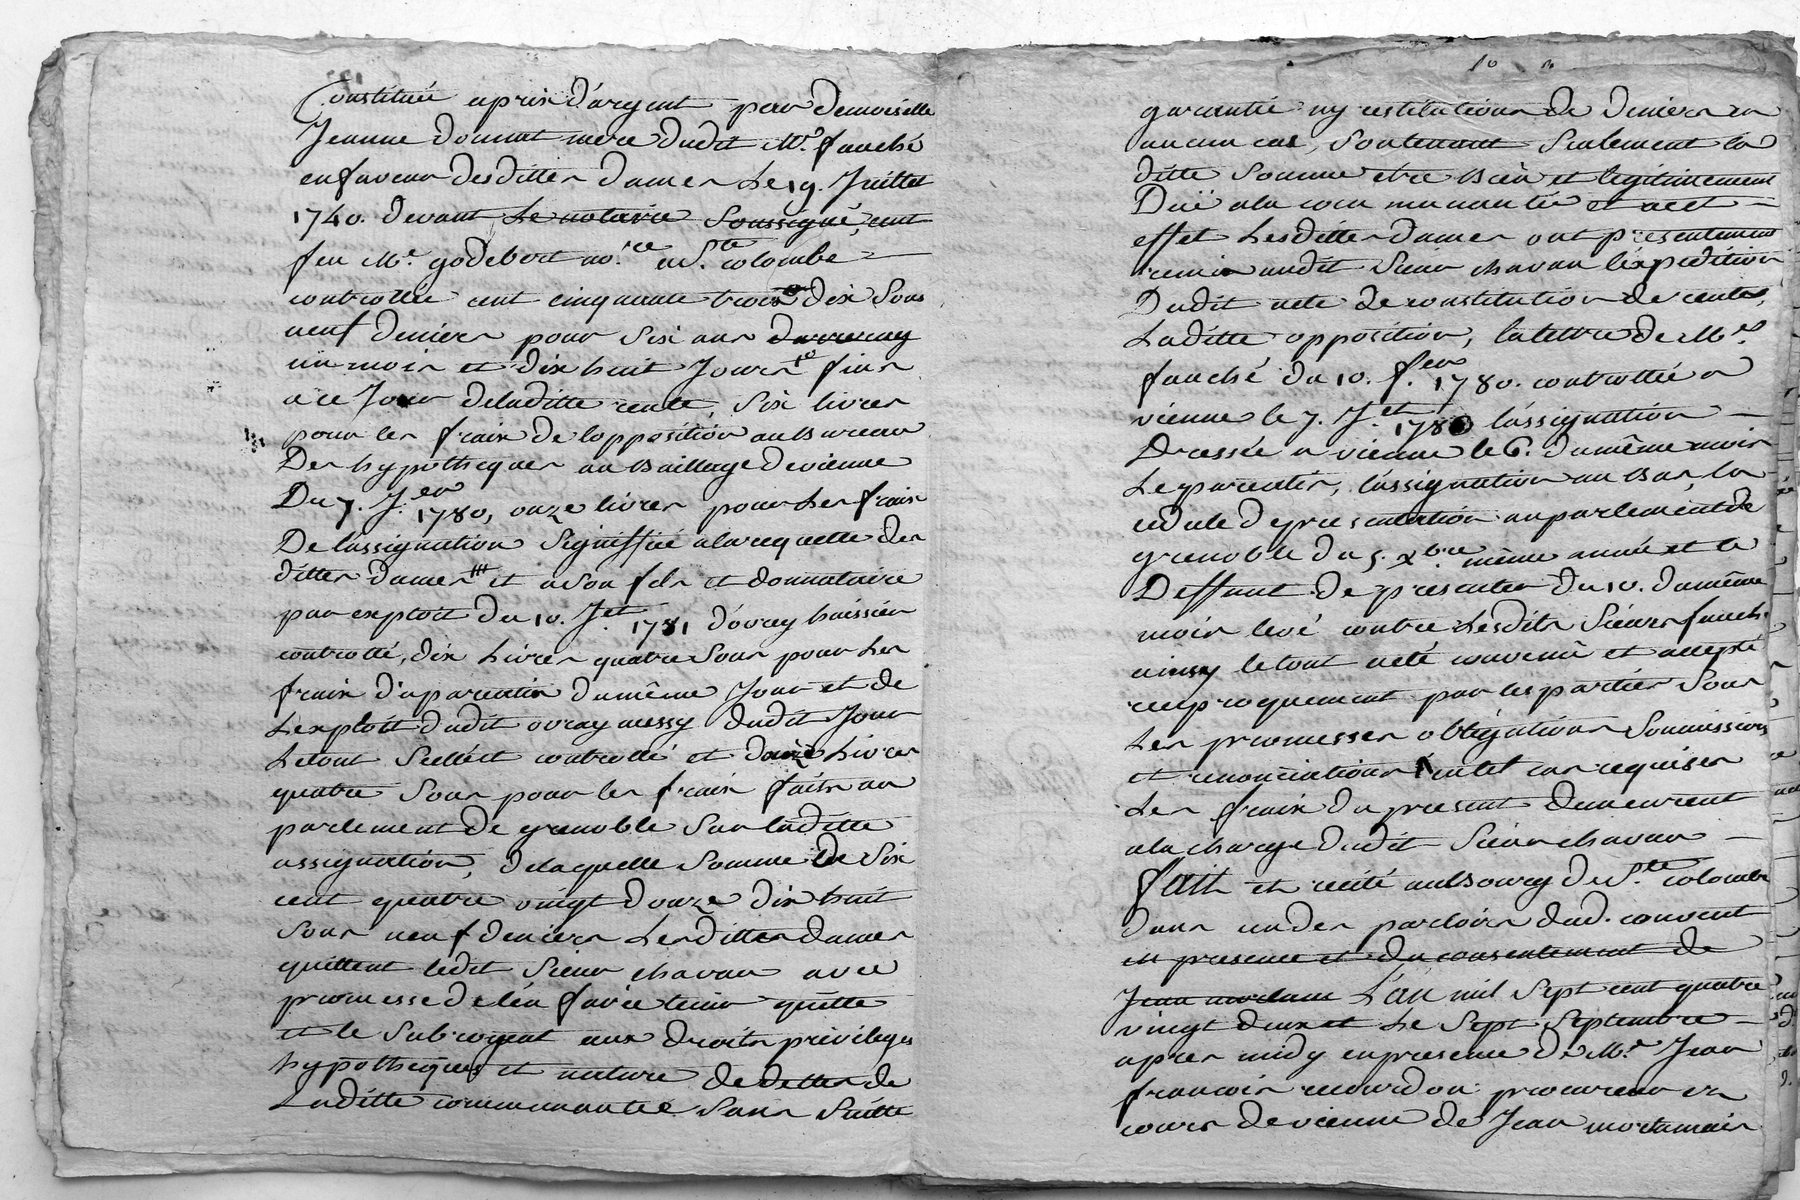 Constituée aprix d'argent par Demoiselle
Jeanne donnat mere dudit Mr. fauché
enfaveur desdittes dames Le 19. Juillet
1740. devant Le notaire soussigné, cent
feu Me. godebert no.re a Ste. colombe
controllée cent cinquante trois dix sous
neuf deniers pour six ans
un mois et dix huit Jours finis
a ce Jour deladitte rente, six livres
pour les fraix de lopposition au Bureau
Des hypotheques au Bailliage de vienne
Du 7. J.er 1780, onze livres pour Les fraix
De lassignation signiffiée ala requette des
dittes dames et a son fils et donnataire
par exploit du 10. J.et 1781 d'ovray huissier
controllé, dix Livres quatre sous pour Les
fraix d'aparentin du même Jour et de
Lexploit dudit ovray aussy dudit Jour
Letout scellé et controllé et douze Livres
quatre sous pour les fraix faits au
parlement de grenoble sur laditte
assignation, de laquelle somme de six
cent quatre vingt douze dix huit
sous neuf deniers Lesdittes dames
quittent ledit sieur chavan avec
promesse de l'en faire tenir quitte
et le subrogent aux droits privileges
hypotheques et nature de dettes de
Laditte communauté sans suitte
garantie ny restitution de deniers en
aucun cas, soutenant seulement la
ditte somme etre Bien et legitimement
Duë ala communauté et a cet
effet Lesdittes dames ont presentement
remis audit sieur chavan l'expedition
Dudit acte de constitution de rente,
Laditte opposition, la lettre de Mr.
fauché du 10. f.er 1780. controllée a
vienne le 7. J.et 1780 lassignation
Dressée a vienne le 6. du même mois
Le parentis, lassignation au Bas, la
cedule de presentation au parlement de
grenoble du 5. xbre. même année et le
Deffaut de presenter du 10. du même
mois levé contre Lesdits sieurs fauché
ainsy le tout a eté convenu et accepté
reciproquement par les parties sous
Les promesses obligations soumissions
et renonciations en tel cas requises
Les fraix du present demeurent
ala charge dudit sieur chavan
fait et recité au Bourg de Ste. colombe
dans un des parloirs dud. couvent
en presence et du consentement de
Jean L'an mil sept cent quatre
vingt deux et Le sept septembre
apres midy en presence de Me. Jean
francois recourdon procureur es
cours de vienne de Jean mortamais